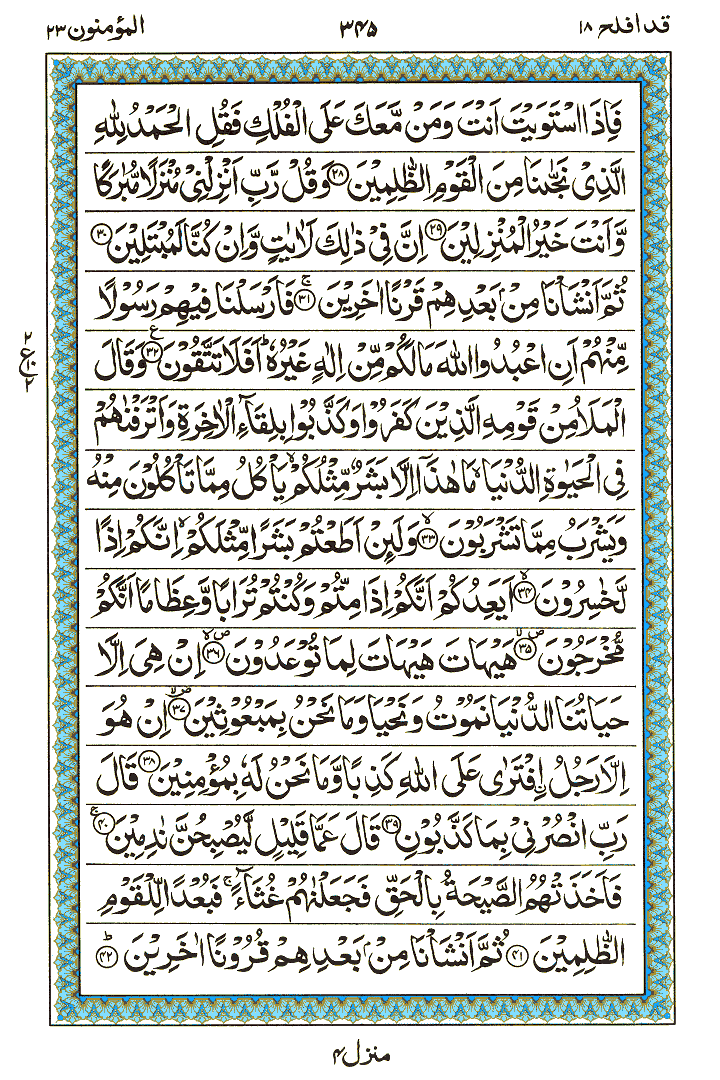 قد افلح ۱۸
۳۴۵
المؤمنون ۲۳
فَاِذَا اسْتَوَيْتَ اَنْتَ وَمَنْ مَّعَكَ عَلَى الْفُلْكِ فَقُلِ الْحَمْدُ لِلّٰهِ
الَّذِىْ نَجّٰىنَا مِنَ الْقَوْمِ الظّٰلِمِيْنَ ۲۸ وَقُلْ رَّبِّ اَنْزِلْنِىْ مُنْزَلًا مُّبٰرَكًا
وَّاَنْتَ خَيْرُ الْمُنْزِلِيْنَ ۲۹ اِنَّ فِىْ ذٰلِكَ لَاٰيٰتٍ وَّاِنْ كُنَّا لَمُبْتَلِيْنَ ۳۰
ثُمَّ اَنْشَاْنَا مِنْۢ بَعْدِهِمْ قَرْنًا اٰخَرِيْنَ ۚ ۳۱ فَاَرْسَلْنَا فِيْهِمْ رَسُوْلًا
مِّنْهُمْ اَنِ اعْبُدُوا اللّٰهَ مَا لَكُمْ مِّنْ اِلٰهٍ غَيْرُهٗ ؕ اَفَلَا تَتَّقُوْنَ ۳۲ ع وَقَالَ
۲ ع ۱۰ ۲
الْمَلَاُ مِنْ قَوْمِهِ الَّذِيْنَ كَفَرُوْا وَكَذَّبُوْا بِلِقَآءِ الْاٰخِرَةِ وَاَتْرَفْنٰهُمْ
فِى الْحَيٰوةِ الدُّنْيَا ۙ مَا هٰذَاۤ اِلَّا بَشَرٌ مِّثْلُكُمْ ۙ يَاْكُلُ مِمَّا تَاْكُلُوْنَ مِنْهُ
وَيَشْرَبُ مِمَّا تَشْرَبُوْنَ ۙ ۳۳ وَلَئِنْ اَطَعْتُمْ بَشَرًا مِّثْلَكُمْ ۙ اِنَّكُمْ اِذًا
لَّخٰسِرُوْنَ ۙ ۳۴ اَيَعِدُكُمْ اَنَّكُمْ اِذَا مِتُّمْ وَكُنْتُمْ تُرَابًا وَّعِظَامًا اَنَّكُمْ
مُّخْرَجُوْنَ ۪ۙ ۳۵ هَيْهَاتَ هَيْهَاتَ لِمَا تُوْعَدُوْنَ ۪ۙ ۳۶ اِنْ هِىَ اِلَّا
حَيَاتُنَا الدُّنْيَا نَمُوْتُ وَنَحْيَا وَمَا نَحْنُ بِمَبْعُوْثِيْنَ ۪ۙ ۳۷ اِنْ هُوَ
اِلَّا رَجُلُ اۨفْتَرٰى عَلَى اللّٰهِ كَذِبًا وَّمَا نَحْنُ لَهٗ بِمُؤْمِنِيْنَ ۳۸ قَالَ
رَبِّ انْصُرْنِىْ بِمَا كَذَّبُوْنِ ۳۹ قَالَ عَمَّا قَلِيْلٍ لَّيُصْبِحُنَّ نٰدِمِيْنَ ۚ ۴۰
فَاَخَذَتْهُمُ الصَّيْحَةُ بِالْحَقِّ فَجَعَلْنٰهُمْ غُثَآءً ۚ فَبُعْدًا لِّلْقَوْمِ
الظّٰلِمِيْنَ ۴۱ ثُمَّ اَنْشَاْنَا مِنْۢ بَعْدِهِمْ قُرُوْنًا اٰخَرِيْنَ ؕ ۴۲
منزل ۴